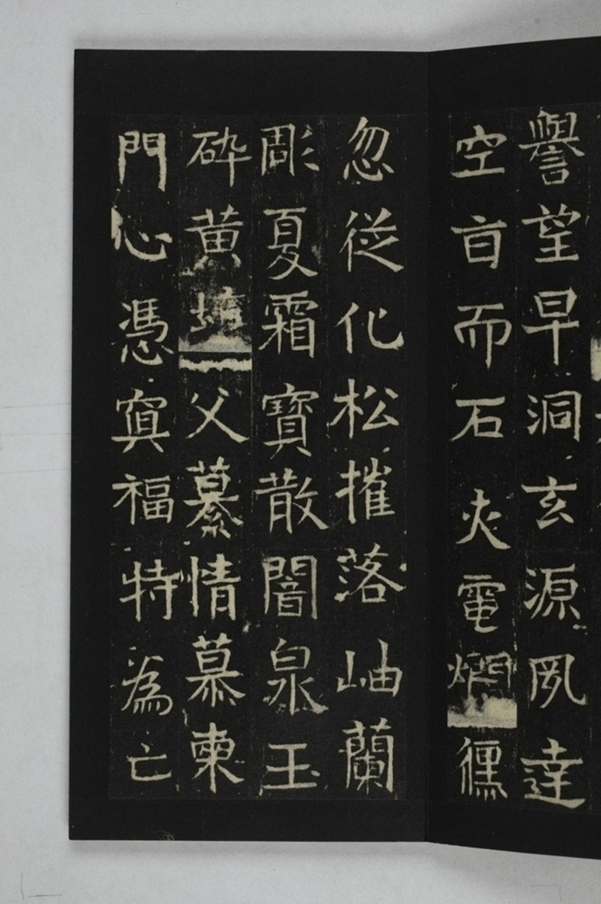 譽望早洞玄源夙達
空盲而石火電燜儵
忽從化松摧落岫蘭
彫夏霜寶散闇泉玉
碎黃父纂情慕東
門心憑寘福特為亡